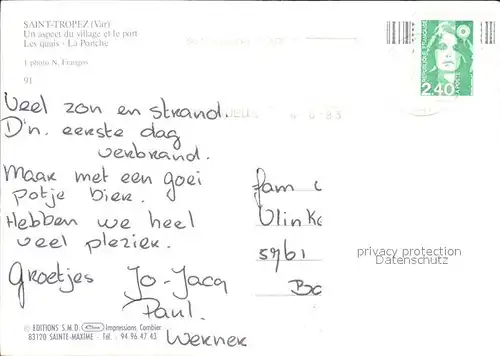 SAINT-TROPEZ (Var)
Un aspect du village et le port
Les quais - La Ponche
1 photo N. François
91
2,40
Veel zon en strand.
D'n eerste dag
verbrand.
Maar met een goei
potje bier.
Hebben we heel
veel plezier.
Groetjes Jo-Jacq
Paul.
Werner
fam
Vlink
5761
Ba
privacy protection
Datenschutz
© EDITIONS S.M.D. Impressions Combier
83120 SAINTE-MAXIME - Tél. : 94.96.47.43